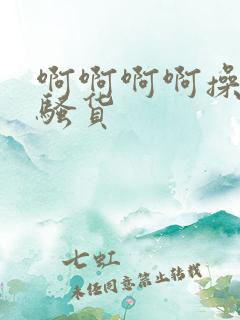 啊啊啊啊操
骚货
七虹
未经同意禁止转载